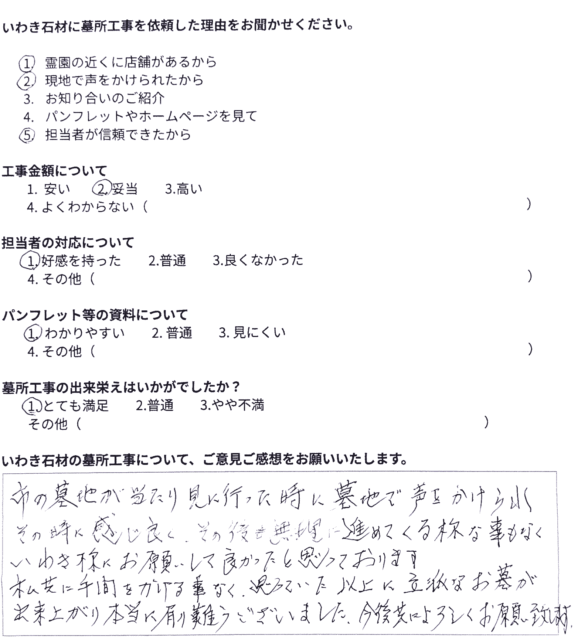 いわき石材に墓所工事を依頼した理由をお聞かせください。
1. 霊園の近くに店舗があるから
2. 現地で声をかけられたから
3. お知り合いのご紹介
4. パンフレットやホームページを見て
5. 担当者が信頼できたから
工事金額について
1. 安い 2.妥当 3.高い
4.よくわからない ( )
担当者の対応について
1.好感を持った 2.普通 3.良くなかった
4.その他 ( )
パンフレット等の資料について
1.わかりやすい 2.普通 3.見にくい
4.その他 ( )
墓所工事の出来栄えはいかがでしたか？
1.とても満足 2.普通 3.やや不満
その他 ( )
いわき石材の墓所工事について、ご意見ご感想をお願いいたします。
市の墓地が当たり見に行った時に墓地で声をかけられ
その時に感じ良く、その後も無理に進めてくる様な事もなく
いわき様にお願いして良かったと思っております
私共に手間をかける事なく、思っていた以上に立派なお墓が
出来上がり本当に有り難うございました、今後共によろしくお願い致します